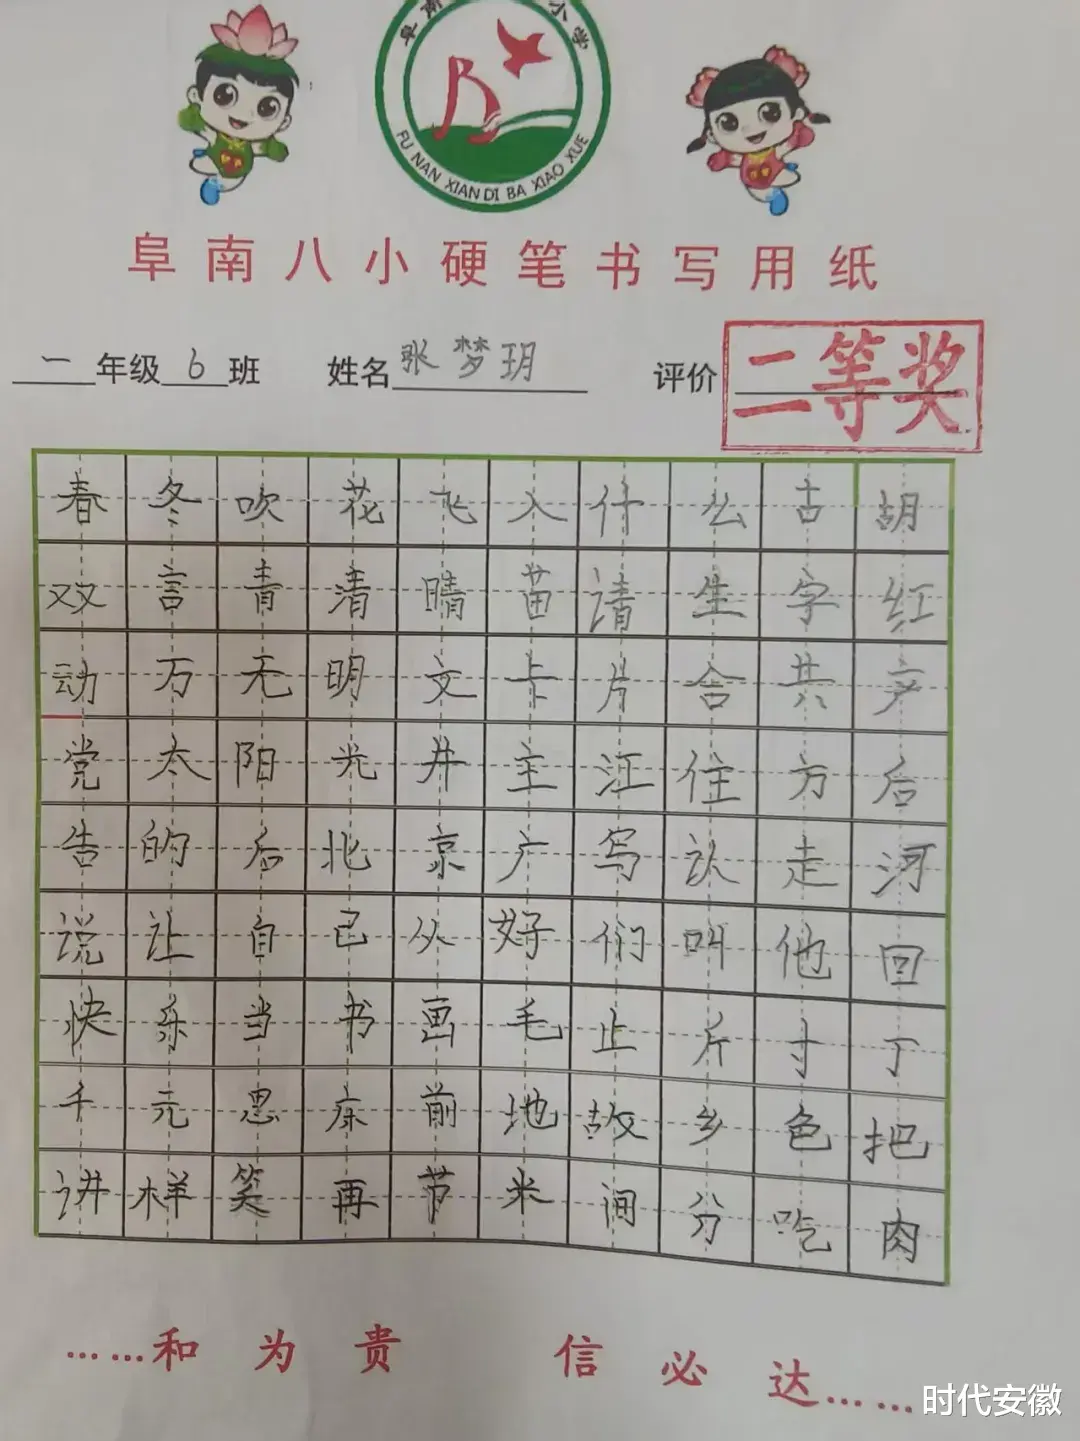 阜南 小学
FU NAN XIAN DI BA XIAO XUE
阜南八小硬笔书写用纸
一年级 6 班 姓名 张梦玥 评价 二等奖
春冬吹花飞入什么古胡
双言青清晴苗请生字红
动万无明文卡片合共产
党太阳光井主江住方后
告的后北京广写认走河
说让自己从好们叫他回
快乐当书画毛止斤寸丁
千元思床前地故乡色把
讲样笑再节米间分吃肉
……和为贵 信必达……
时代安徽